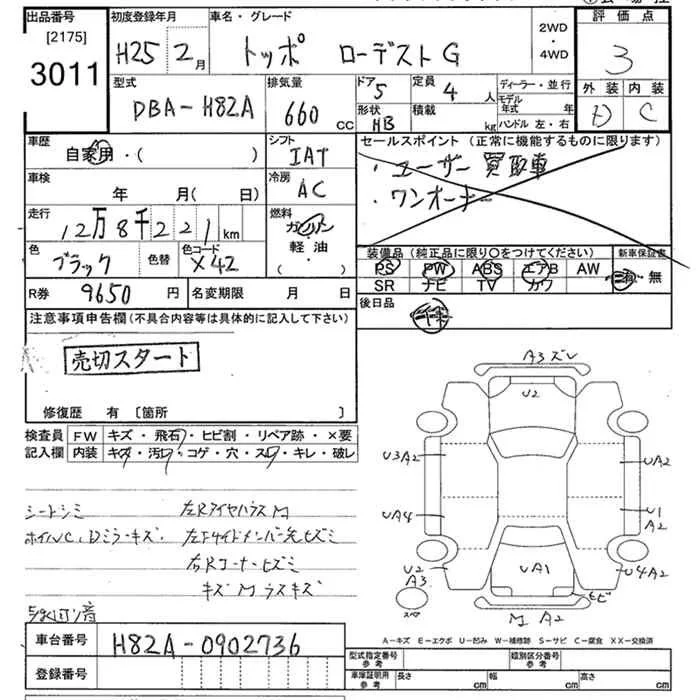 出品番号
[2175]
3011
初度登録年月
H25 2月
車名・グレード
トッポ ローデストG
2WD
・
4WD
評価点
3
外装 内装
D C
型式
DBA-H82A
排気量
660 cc
ドア 5
形状 HB
定員 4 人
積載 kg
ディーラー・並行
モデル年式 年
ハンドル 左・右
車歴
自家用・( )
シフト
IAT
車検
年 月(日)
冷房
AC
走行
12万8千221km
燃料
ガソリン
軽油
( ・ )
色
ブラック
色替
色コード
X42
R券 9650 円
名変期限 月 日
セールスポイント(正常に機能するものに限ります)
・ユーザー買取車
・ワンオーナー
装備品(純正品に限り○をつけてください)
PS PW ABS エアB AW
SR ナビ TV カワ
新車保証書
有 無
後日品
注意事項申告欄(不具合内容等は具体的に記入して下さい)
売切スタート
修復歴 有 [箇所 ]
検査員記入欄
FW キズ・飛石・ヒビ割・リペア跡・×要
内装 キズ・汚レ・コゲ・穴・スレ・キレ・破レ
シートシミ
左Rタイヤハウス M
ホイルNC、Dミラーキズ
左Fサイドメンバー先ヒズミ
右Rコーナーヒズミ
キズMラスキズ
車台番号 H82A-0902736
登録番号
A3ズレ
U2
U3A2
UA2
UA4
U1
A2
U2
A3
UA1
U4A2
ヒビ
M A2
スペ
A-キズ E-エクボ U-凹み W-補修跡 S-サビ C-腐食 XX-交換済
型式指定番号
参考
類別区分番号
参考
車庫証明用
参考
長さ cm
幅 cm
高さ cm